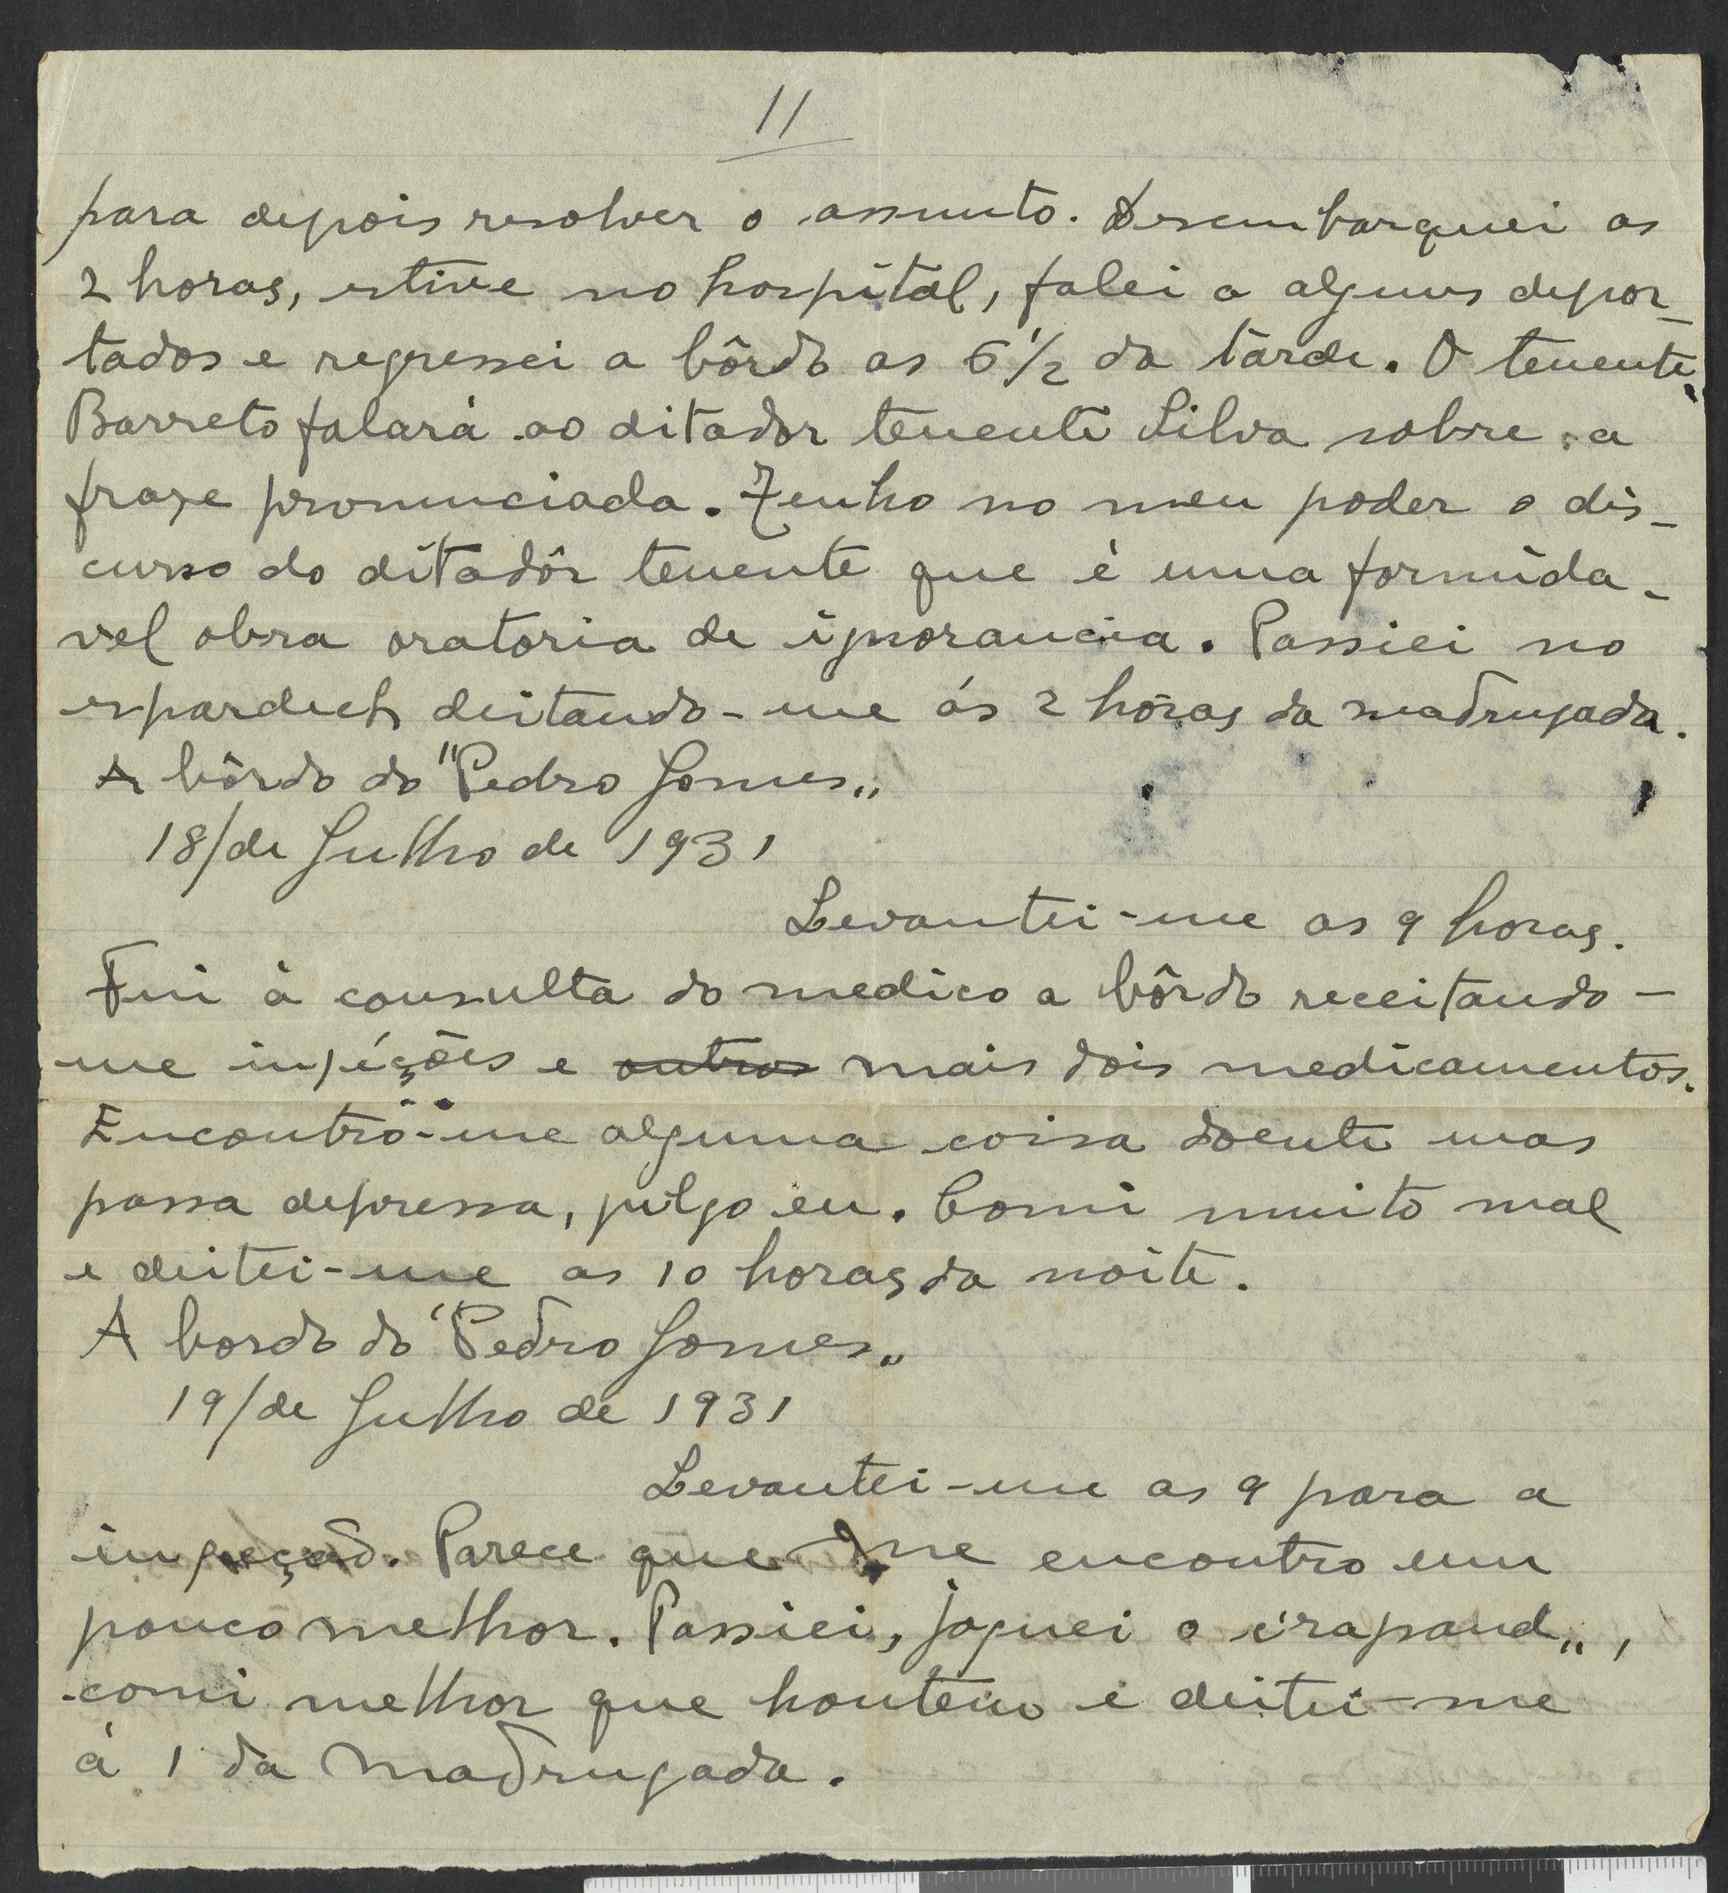 11
para depois resolver o assunto. Desembarquei as
2 horas, estive no hospital, falei a alguns depor-
tados e regressei a bôrdo as 6 1/2 da tarde. O tenente
Barreto falará ao ditador tenente Silva sobre a
fraze pronunciada. Tenho no meu poder o dis-
curso do ditadôr tenente que é uma formida-
vel obra oratoria de ignorancia. Passiei no
espardech deitando-me ás 2 horas da madrugada.
A bôrdo do "Pedro Gomes"
18/de Julho de 1931
Levantei-me as 9 horas.
Fui à consulta do medico a bôrdo receitando-
me injéções e outros mais dois medicamentos.
Encontro-me alguma coisa doente mas
passa depressa, julgo eu. Comi muito mal
e deitei-me as 10 horas da noite.
A bordo do "Pedro Gomes"
19/de Julho de 1931
Levantei-me as 9 para a
injeção. Parece que me encontro um
pouco melhor. Passiei, joguei o
comi melhor que hontem e deitei-me
á 1 da madrugada.